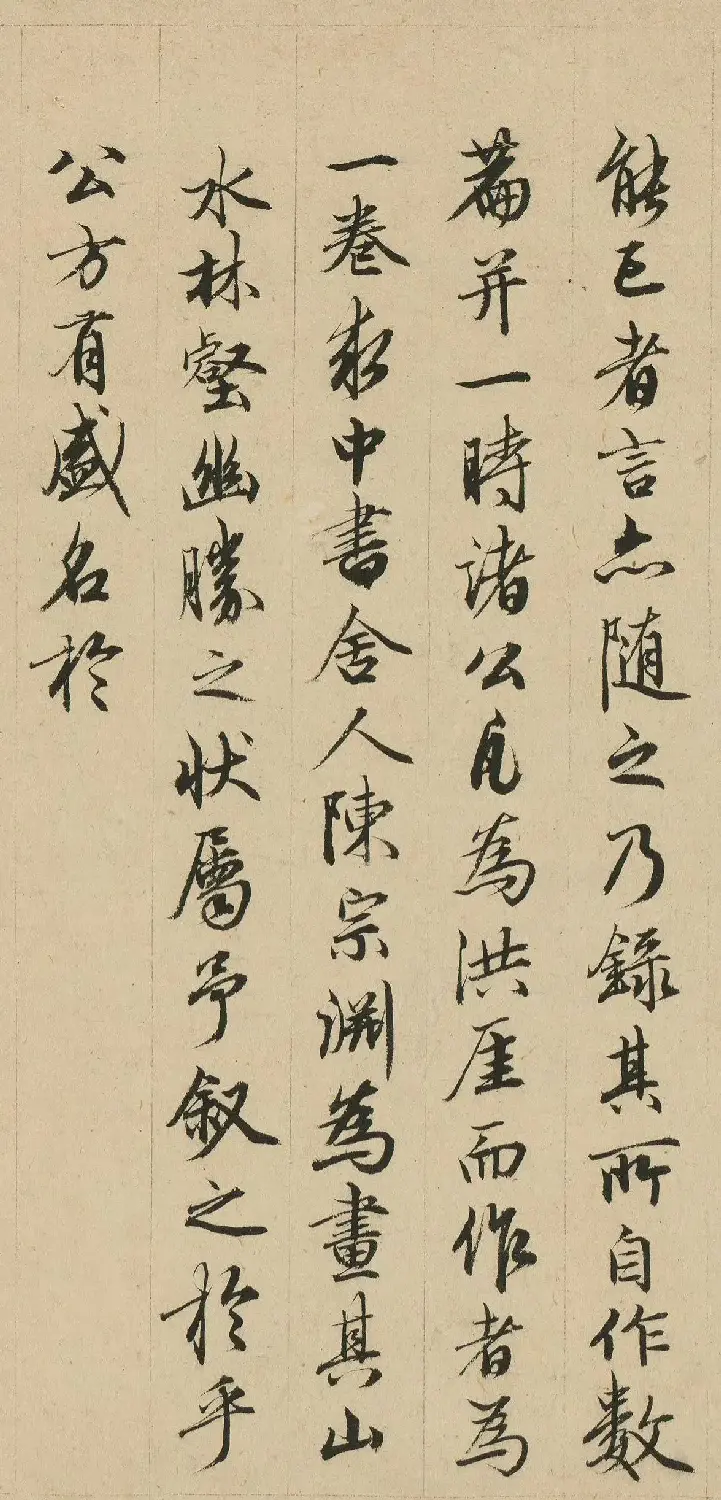 能已者言亦随之乃錄其所自作數
篇并一時諸公凡為洪厓而作者為
一卷求中書舍人陳宗淵為畫其山
水林壑幽勝之狀屬予叙之於乎
公方有盛名於